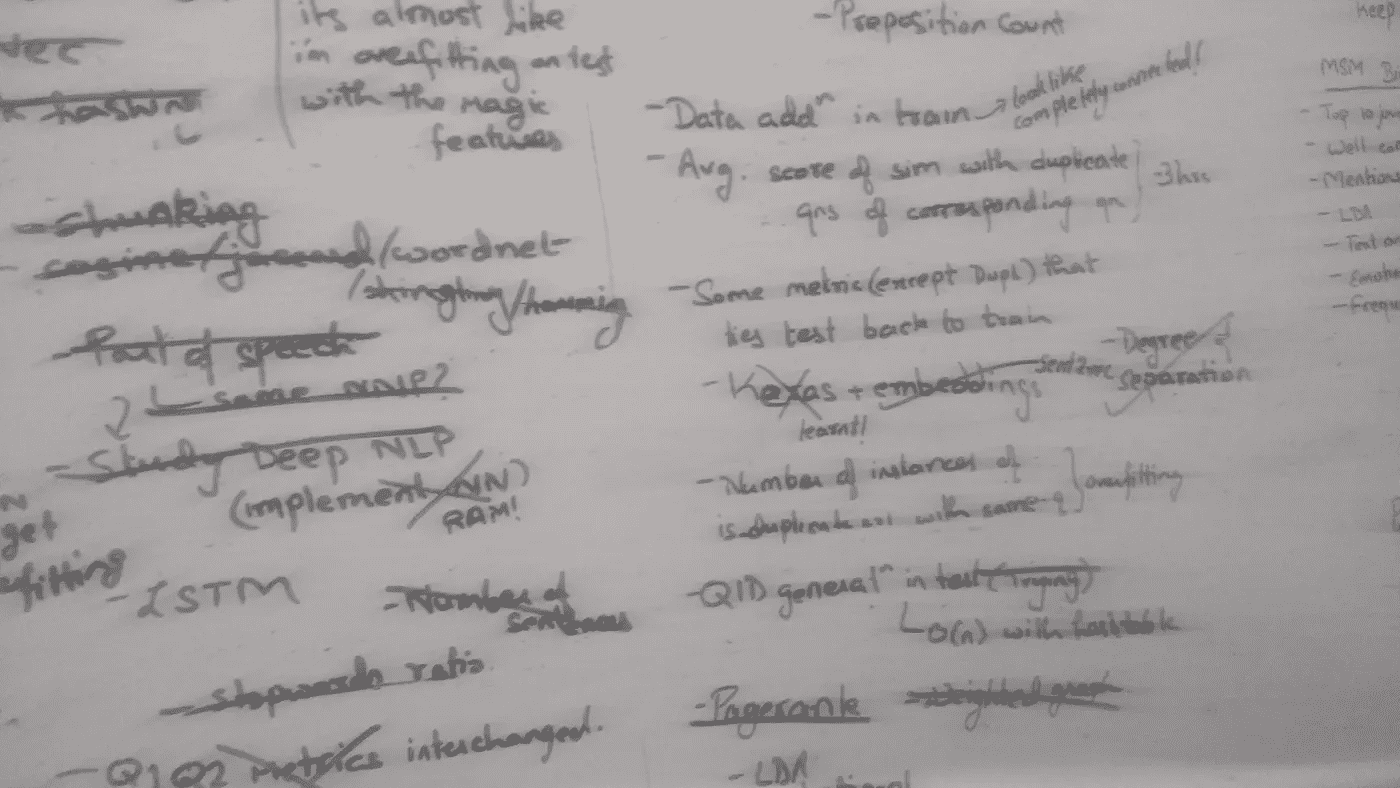 its almost like
i'm overfitting on test
with the magic
features
- chunking
- cosine/jaccard/wordnet
/shingling/hamming
- Part of speech
same NNP?
- Study Deep NLP
(implement NN)
RAM!
get
fitting
- LSTM
- Number of
sentences
- stopwords ratio
- Q1 Q2 Metrics interchanged.
- Preposition Count
- Data addⁿ in train → look like
completely connected!
- Avg. score of sim with duplicate
qns of corresponding qn
3 hrs
- Some metric (except Dupl) that
ties test back to train
- Keras + embeddings
sent2vec
learnt!
- Degree of
separation
- Number of instances of
is_duplicate == 1 with same q
overfitting
- QID generatⁿ in test (Trying)
O(n) with hashtable
- Pagerank
- Weighted graph
- LDA
keep
MSM
- Top 10
- Well
- Mentions
- LDA
- Text